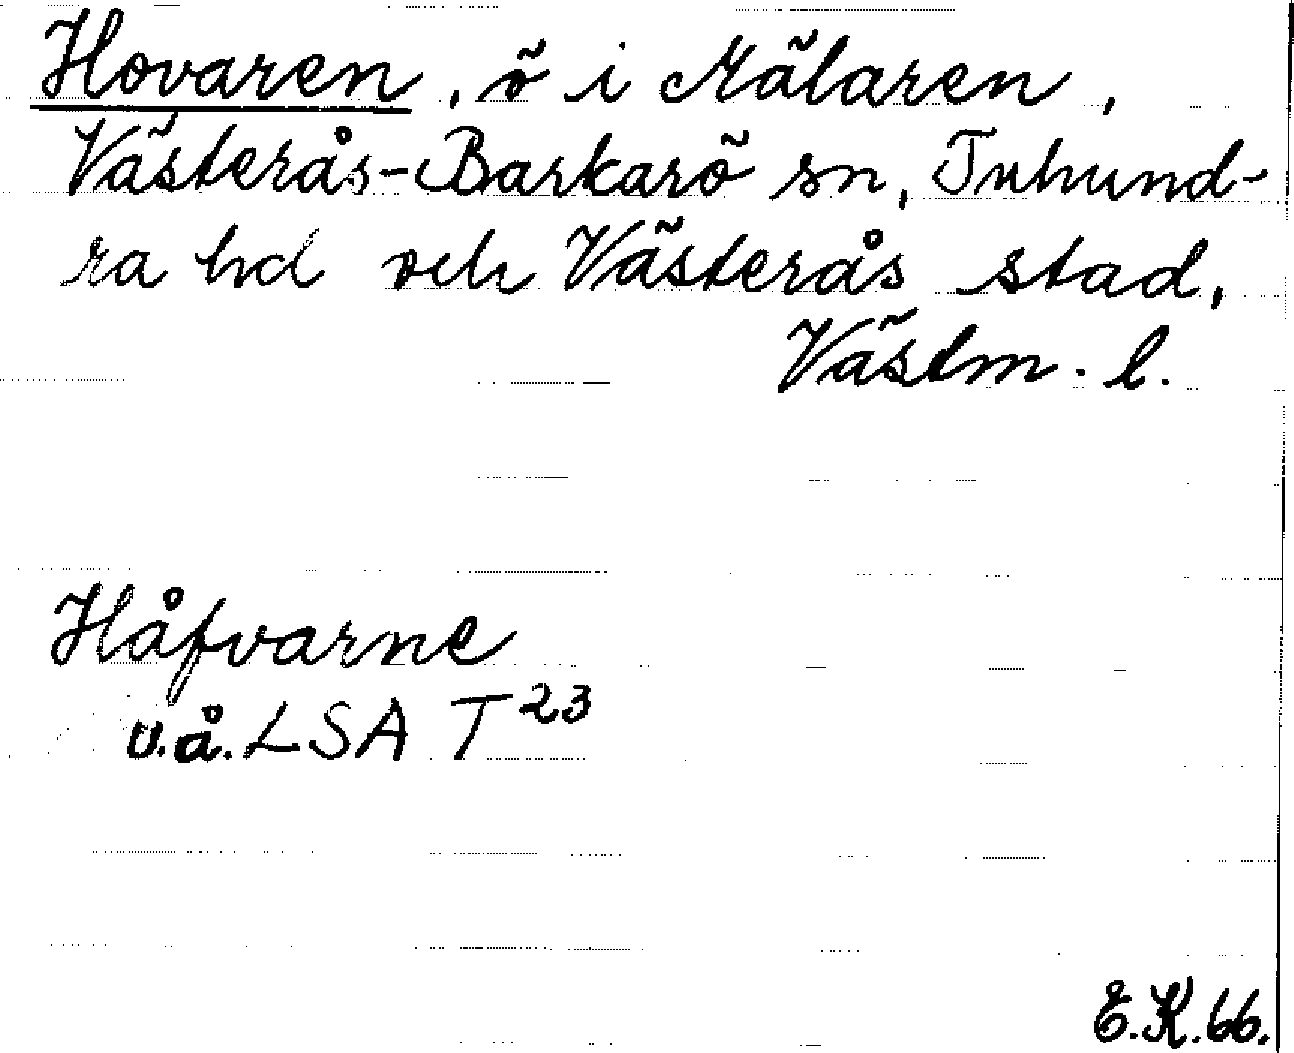 Hovaren, ö i Mälaren,
Västerås-Barkarö sn, Tuhund-
ra hd och Västerås stad,
Västm. l.
Håfvarne
u.å. LSA T 23
E.K. 66.